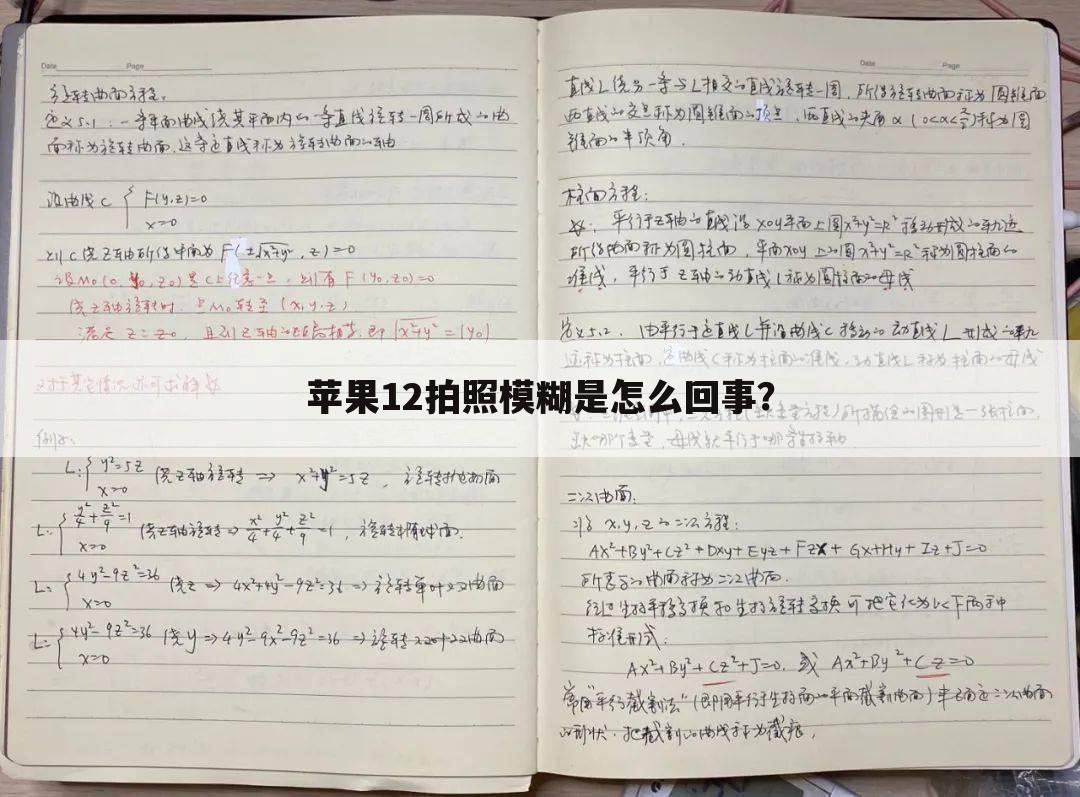 Date Page
旋转曲面方程。
定义5.1:一条平面曲线绕其平面内的一条直线旋转一周所成的曲
面称为旋转曲面.这条定直线称为旋转曲面的轴
设曲线C { F(y,z)=0
x=0
则C绕Z轴所得曲面为F(±√x²+y²,z)=0
设M₀(0,y₀,z₀)是C上任意一点,则有F(y₀,z₀)=0
绕Z轴旋转时,点M₀转至(x,y,z)
满足 z=z₀ 且到Z轴的距离相等,即√x²+y²=|y₀|
对于其它情况亦可求得
例:
L:{ y²=5z 绕Z轴旋转 ⇒ x²+y²=5z,旋转抛物面
x=0
L:{ y²/4+z²/9=1 绕Z轴旋转⇒ x²/4+y²/4+z²/9=1,旋转椭球面.
x=0
L:{ 4y²-9z²=36 绕z ⇒ 4x²+4y²-9z²=36 ⇒ 旋转单叶双曲面
x=0
L:{ 4y²-9z²=36 绕y ⇒ 4y²-9x²-9z²=36 ⇒ 旋转双叶双曲面
x=0
Date Page
直线L绕另一条与L相交的直线旋转一周,所得旋转曲面称为圆锥面
两直线的交点称为圆锥面的顶点,两直线的夹角α(0<α<π/2)称为圆
锥面的半顶角.
柱面方程:
平行于Z轴的直线沿xoy平面上圆x²+y²=R²移动形成的轨迹
所得曲面称为圆柱面,平面xoy上的圆x²+y²=R²称为圆柱面的
准线,平行于Z轴的动直线L称为圆柱面的母线
定义5.2.由平行于定直线L并沿曲线C移动的动直线L形成的轨
迹称为柱面,定曲线C称为柱面的准线,动直线L称为柱面的母线
苹果12拍照模糊是怎么回事?
所描绘的图形是一张柱面,
缺哪个变量,母线就平行于哪条坐标轴
二次曲面.
x,y,z的二次方程:
Ax²+By²+Cz²+Dxy+Eyz+Fzx+Gx+Hy+Iz+J=0
所表示的曲面称为二次曲面.
经过坐标平移变换和坐标旋转变换可把它化为以下两种
标准形式:
Ax²+By²+Cz²+J=0,或 Ax²+By²+Cz=0
常用"平行截割法"(即用平行于坐标面的平面截割曲面)来确定二次曲面
的形状.把截割的曲线称为截痕,